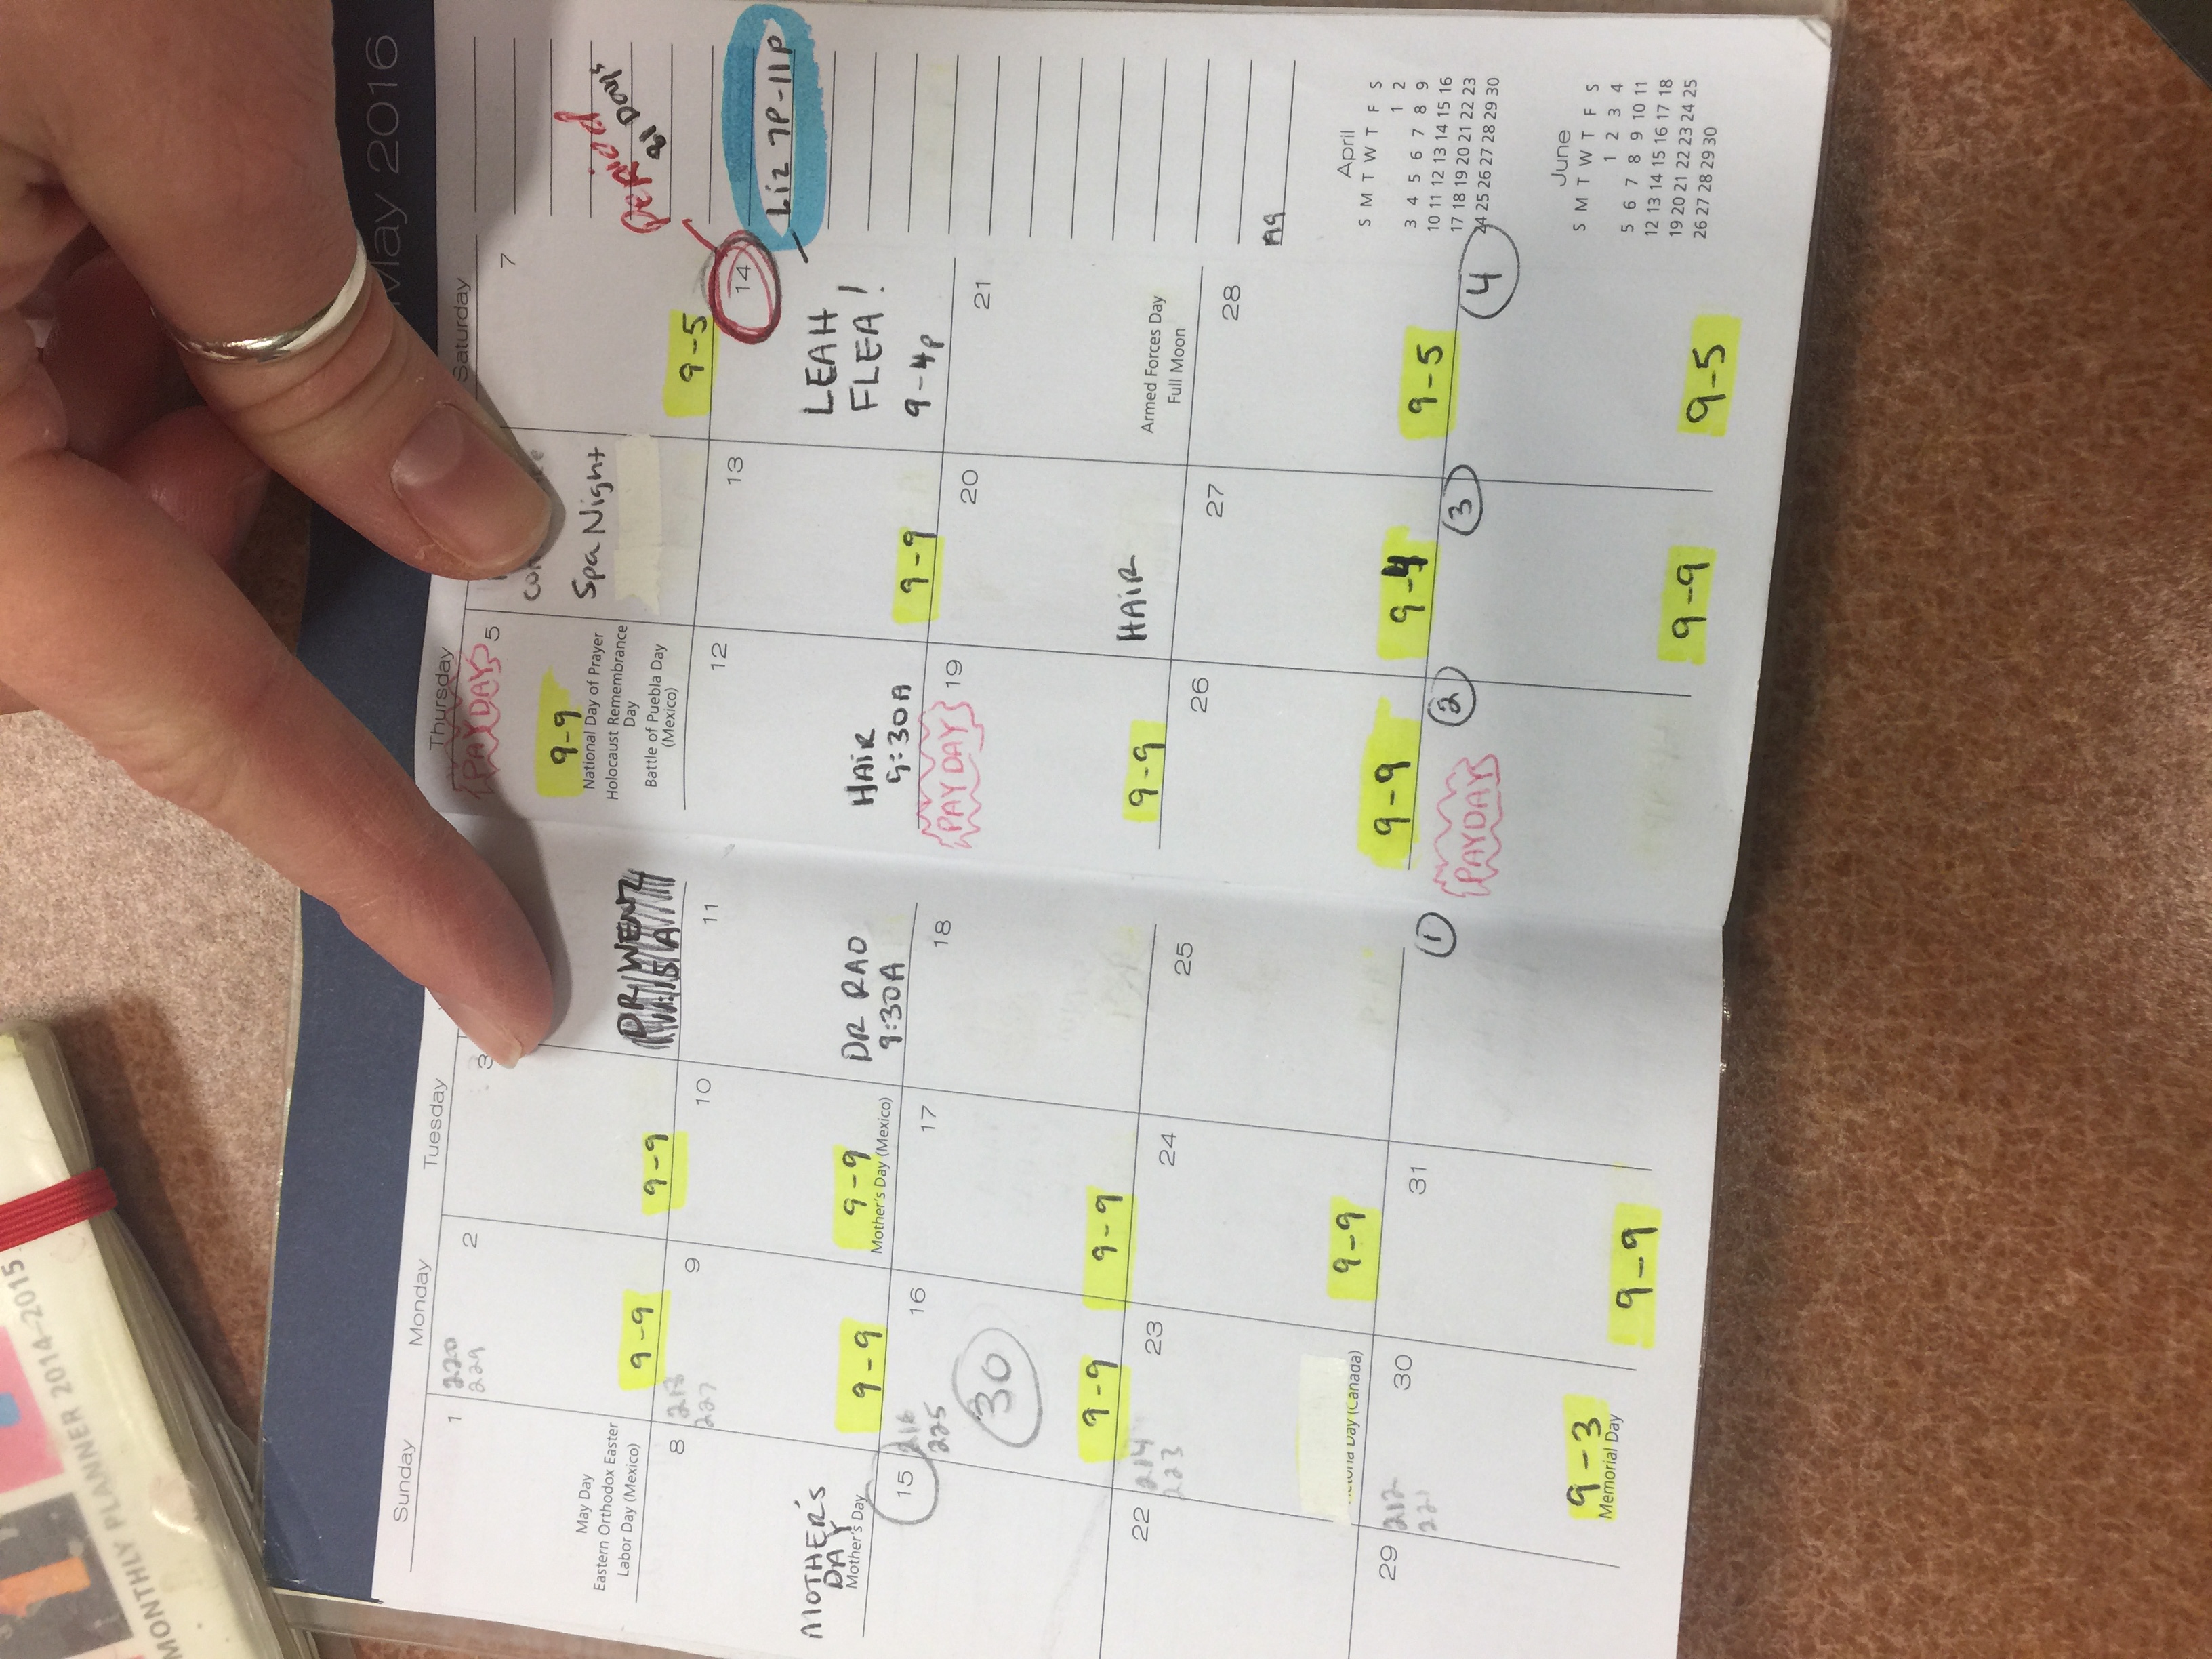 MONTHLY PLANNER 2014–2015
May 2016
Sunday
Monday
Tuesday
Thursday
Saturday
1
May Day
Eastern Orthodox Easter
Labor Day (Mexico)
220
229
2
9-9
3
9-9
DR WENZ
11:15 A
PAYDAY
5
9-9
National Day of Prayer
Holocaust Remembrance
Day
Battle of Puebla Day
(Mexico)
Spa Night
7
9-5
Period
8
MOTHER'S
DAY
Mother's Day
218
227
9
9-9
10
9-9
Mother's Day (Mexico)
11
DR RAO
9:30A
12
HAIR
9:30A
13
9-9
14
LEAH
FLEA!
9-4p
Liz 7P-11P
15
216
225
16
30
9-9
17
9-9
18
PAYDAY
19
9-9
20
HAIR
21
Armed Forces Day
Full Moon
22
214
223
23
Day (Canada)
24
9-9
25
26
9-9
27
9-4
28
9-5
29
212
221
30
9-3
Memorial Day
31
9-9
1
PAYDAY
2
3
9-9
4
9-5
April
S M T W T F S
1 2
3 4 5 6 7 8 9
10 11 12 13 14 15 16
17 18 19 20 21 22 23
24 25 26 27 28 29 30
June
S M T W T F S
1 2 3 4
5 6 7 8 9 10 11
12 13 14 15 16 17 18
19 20 21 22 23 24 25
26 27 28 29 30